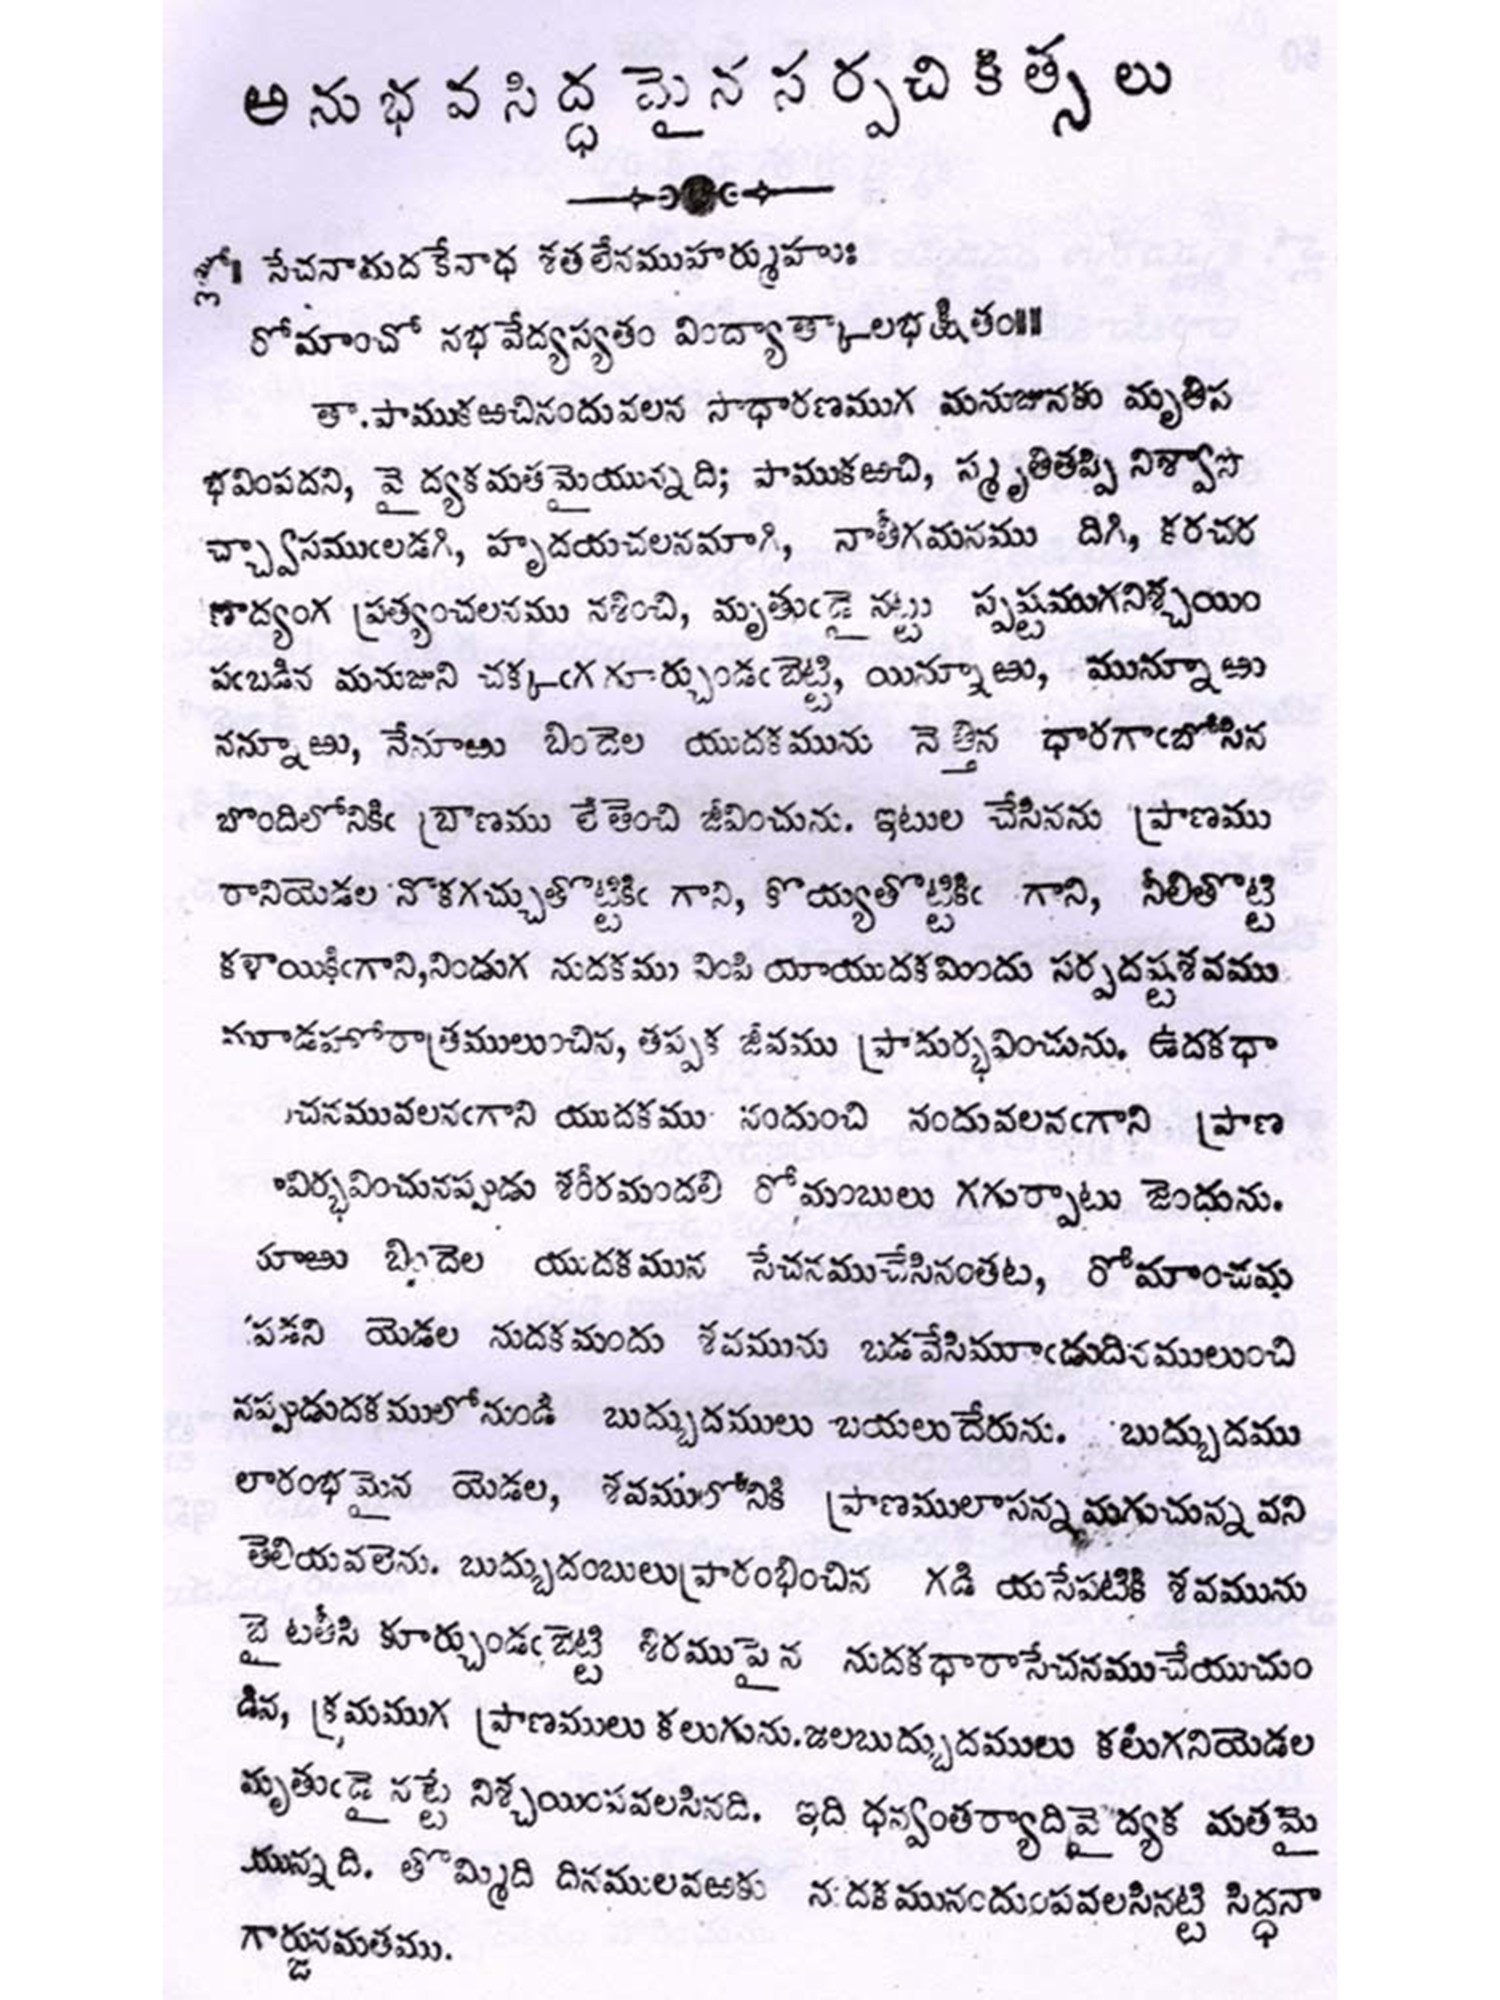 అనుభవసిద్ధమైనసర్పచికిత్సలు
శ్లో॥ సేచనాదుదకేనాధ శతలేనముహర్ముహుః
రోమాంచో నభవేద్యస్యతం వింద్యాత్కాలభక్షితం॥॥
తా.పాముకఱచినందువలన సాధారణముగ మనుజునకు మృతిప
భవింపదని, వైద్యకమతమైయున్నది; పాముకఱచి, స్మృతితప్పి నిశ్వాసో
చ్ఛ్వాసములఁడగి, హృదయచలనమాగి, నాతీగమనము దిగి, కరచర
ణాద్యంగ ప్రత్యంచలనము నశించి, మృతుఁడై నట్టు స్పష్టముగనిశ్చయిం
పఁబడిన మనుజుని చక్కఁగగూర్చుండఁబెట్టి, యిన్నూఱు, మున్నూఱు
నన్నూఱు, నేనూఱు బిందెల యుదకమును నెత్తిన ధారగాఁబోసిన
బొందిలోనికిఁ బ్రాణము లేతెంచి జీవించును. ఇటుల చేసినను ప్రాణము
రానియెడల నొకగచ్చుతొట్టికిఁ గాని, కొయ్యతొట్టికిఁ గాని, నీలితొట్టి
కళాయికిఁగాని,నిండుగ నుదకము నింపి యాయుదకమందు సర్పదష్టశవము
మూడహోరాత్రములుంచిన, తప్పక జీవము ప్రాదుర్భవించును. ఉదకధా
చనమువలనఁగాని యుదకము నందుంచి నందువలనఁగాని ప్రాణ
విర్భవించునప్పుడు శరీరమందలి రోమంబులు గగుర్పాటు జెందును.
నూఱు బిందెల యుదకమున సేచనముచేసినంతట, రోమాంచము
పడని యెడల నుదకమందు శవమును బడవేసిమూఁడుదినములుంచి
నప్పుడుదకములోనుండి బుద్బుదములు బయలుదేరును. బుద్బుదము
లారంభమైన యెడల, శవములోనికి ప్రాణములాసన్నమగుచున్నవని
తెలియవలెను. బుద్బుదంబులుప్రారంభించిన గడి యసేపటికి శవమును
బైటతీసి కూర్చుండఁబెట్టి శిరముపైన నుదకధారాసేచనముచేయుచుం
డిన, క్రమముగ ప్రాణములు కలుగును.జలబుద్బుదములు కలుగనియెడల
మృతుఁడై నట్టే నిశ్చయింపవలసినది. ఇది ధన్వంతర్యాదివైద్యక మతమై
యున్నది. తొమ్మిది దినములవఱకు నుదకమునందుంపవలసినట్టి సిద్ధనా
గార్జునమతము.